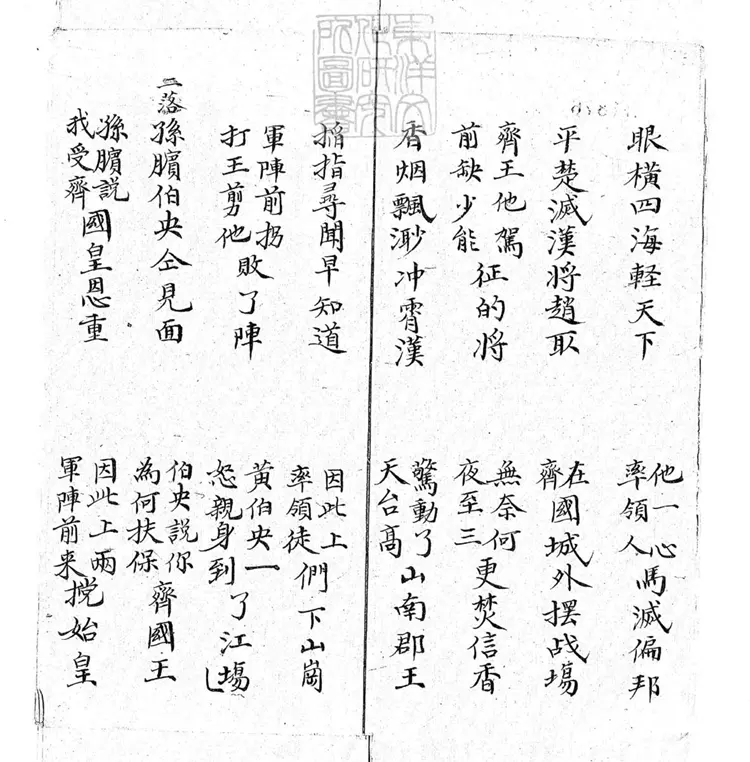 東洋文化研究所圖書
眼橫四海軽天下
他一心率領人馬滅偏邦
平楚滅漢將趙取
在齊國城外摆战塲
齊王他駕前缺少能征的將
無奈何夜至三更焚信香
香烟飄渺冲霄漢
驚動了天台髙山南郡王
掐指尋聞早知道
因此上率領徒們下山崗
軍陣前拐打王剪他敗了陣
黃伯央一怒親身到了江塲
二落
孫臏伯央仝見面
伯央說你為何扶保齊國王
孫臏說我受齊國皇恩重
因此上兩軍陣前来攩始皇